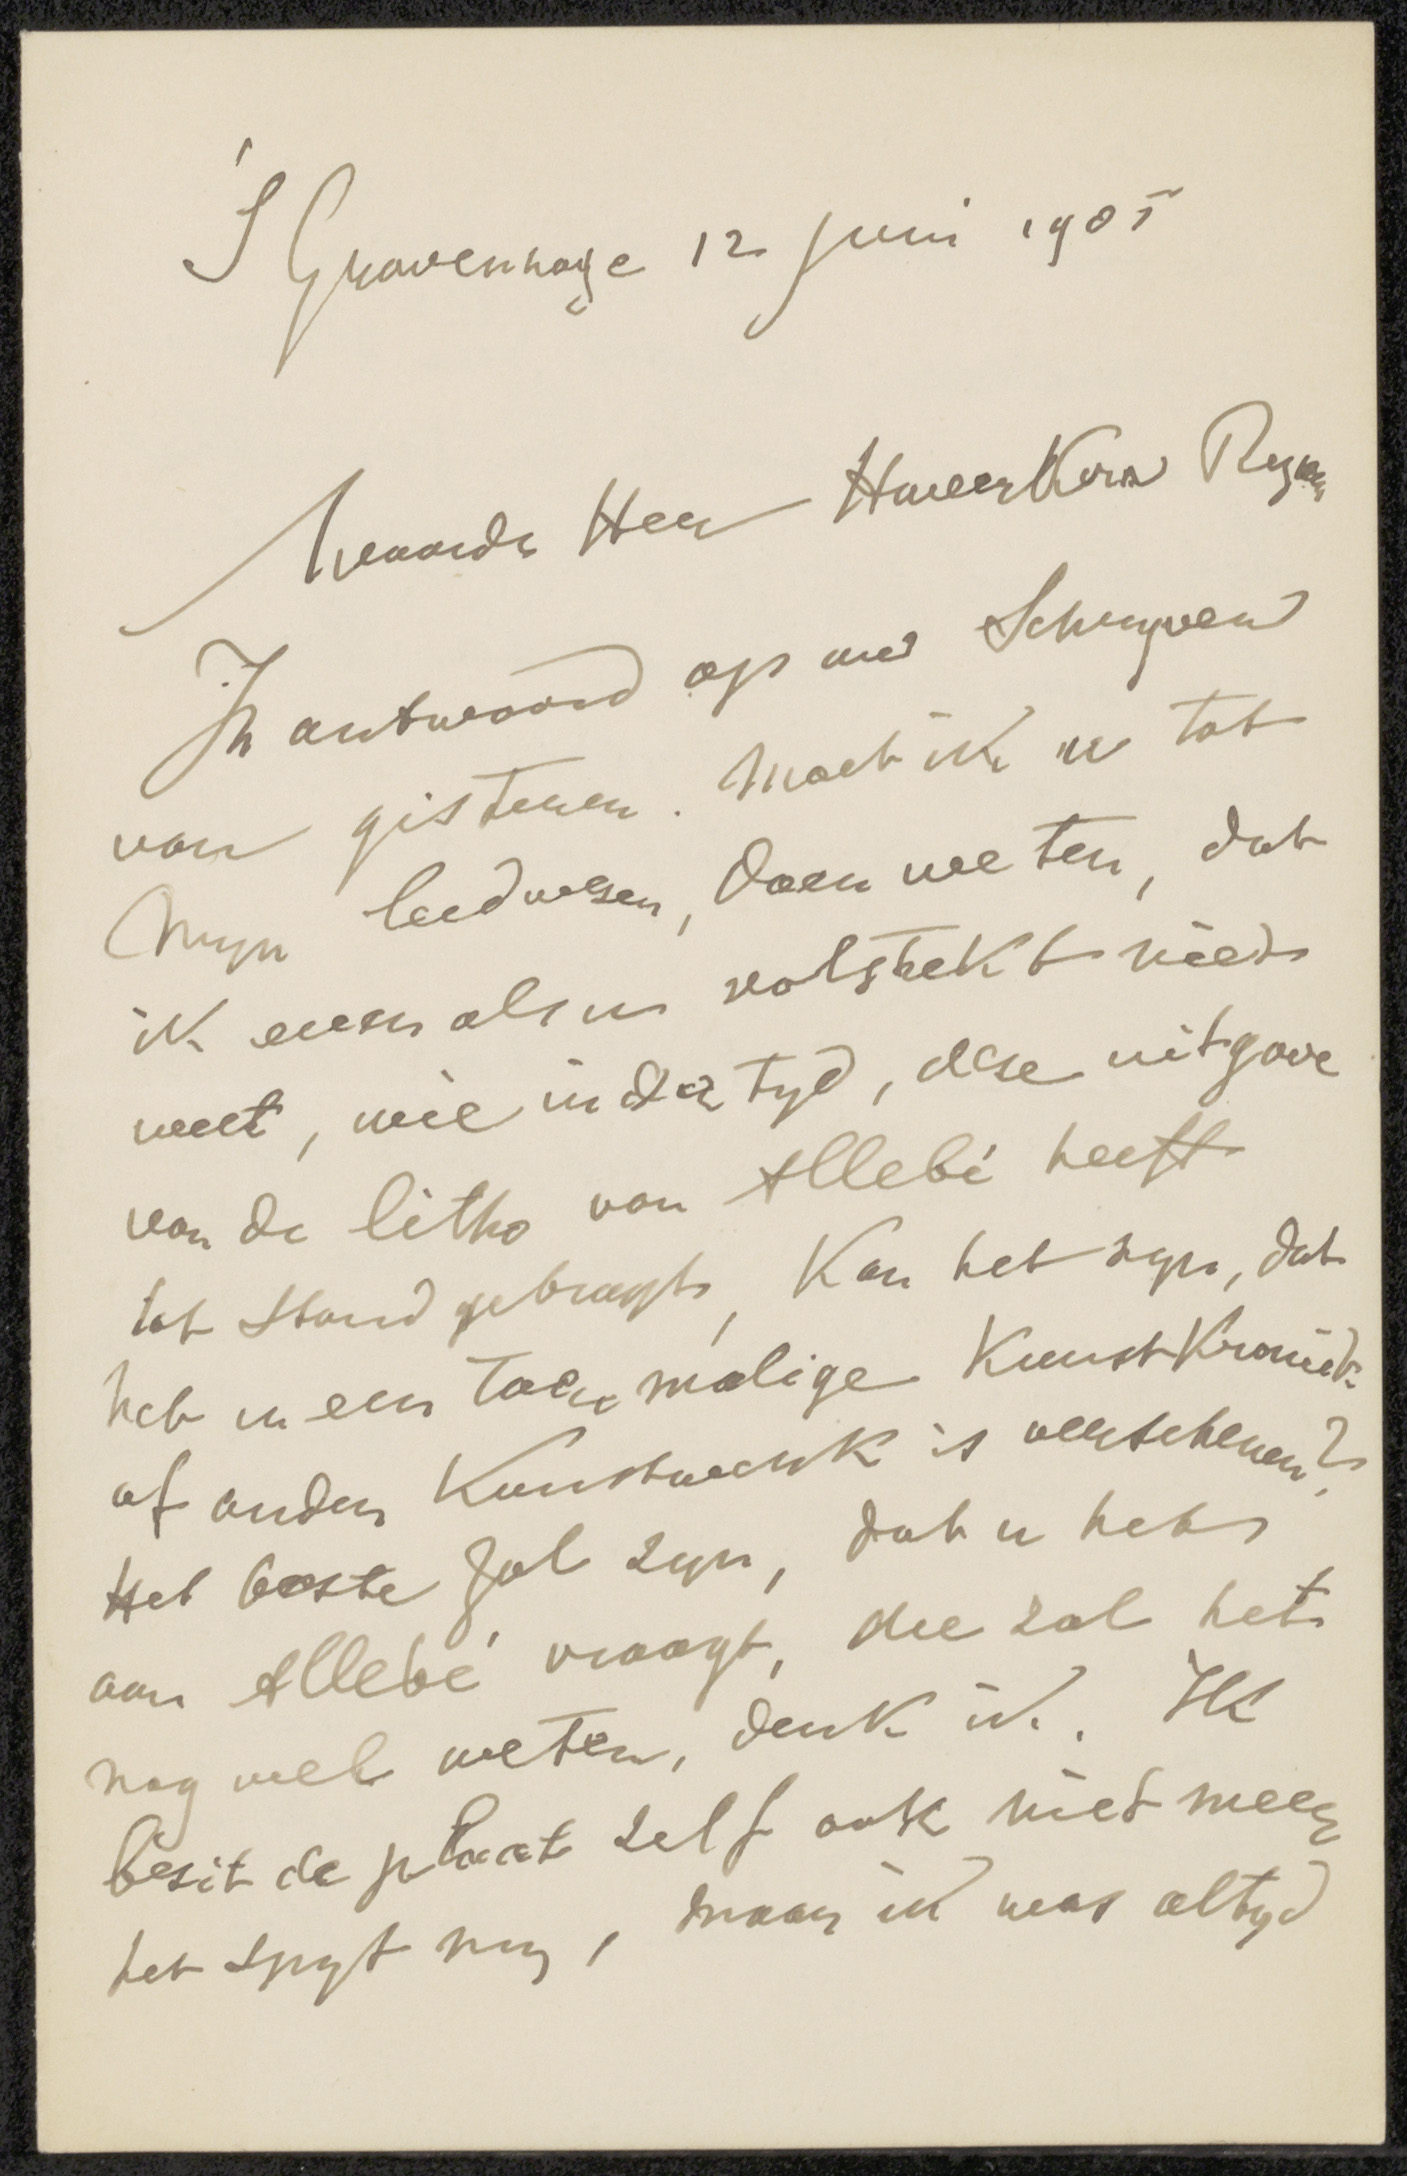 'S Gravenhage 12 Juni 1905
Waarde Heer Haverkorn Rysewyk
In antwoord op uw Schryven
van gisteren. moet ik u tot
Myn leedwesen, doen weten, dat
ik evenals u volstrekt niet
weet, wie in der tyd, dese uitgave
van de litho van Allebé heeft
tot stand gebragt, Kan het zyn, dat
het in een toenmalige Kunst Kroniek
of ander Kunstwerk is verschenen?
Het beste zal zyn, dat u het
aan Allebé vraagt, die zal het
nog wel weten, denk ik. Ik
besit de plaat zelf ook niet meer
het spyt my, maar ik was altyd